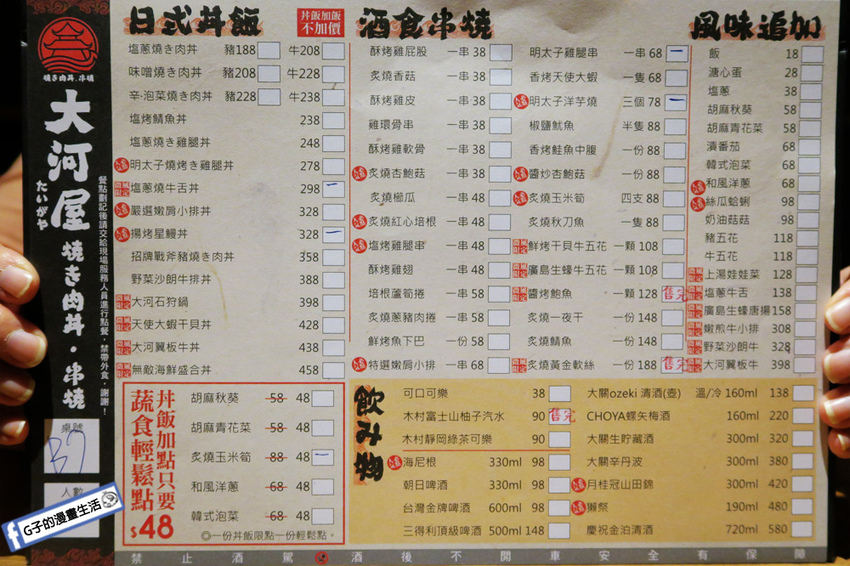 燒き肉丼.串燒
大河屋
たいがや
燒き肉丼・串燒
餐點劃記後請交給現場服務人員進行點餐，禁帶外食，謝謝！
桌號
B7
人數
G子的漫畫生活
日式丼飯
丼飯加飯
不加價
塩蔥燒き肉丼 豬188 牛208
味噌燒き肉丼 豬208 牛228
辛-泡菜燒き肉丼 豬228 牛238
塩烤鯖魚丼 238
塩蔥燒き雞腿丼 248
明太子燒烤き雞腿丼 278
塩蔥燒牛舌丼 298
嚴選嫩肩小排丼 328
揚烤星鰻丼 328
招牌戰斧豬燒き肉丼 358
野菜沙朗牛排丼 388
大河石狩鍋 398
天使大蝦干貝丼 428
大河翼板牛丼 438
無敵海鮮盛合丼 458
丼飯加點只要
蔬食輕鬆點
$48
胡麻秋葵 58 48
胡麻青花菜 58 48
炙燒玉米筍 88 48
和風洋蔥 68 48
韓式泡菜 68 48
◎一份丼飯限點一份輕鬆點。
酒食串燒
酥烤雞屁股 一串 38
炙燒香菇 一串 38
酥烤雞皮 一串 38
雞環骨串 一串 38
酥烤雞軟骨 一串 38
炙燒杏鮑菇 一串 38
炙燒櫛瓜 一串 48
炙燒紅心培根 一串 48
塩烤雞腿串 一串 48
酥烤雞翅 一串 48
培根蘆筍捲 一串 58
炙燒蔥豬肉捲 一串 58
鮮烤魚下巴 一份 58
特選嫩肩小排 一串 68
明太子雞腿串 一串 68
香烤天使大蝦 一隻 68
明太子洋芋燒 三個 78
椒鹽魷魚 半隻 88
香烤鮭魚中腹 一份 88
醬炒杏鮑菇 一份 88
炙燒玉米筍 四支 88
炙燒秋刀魚 一隻 88
鮮烤干貝牛五花 一顆 108
廣島生蠔牛五花 一顆 108
醬烤鮑魚 一顆 128 售完
炙燒一夜干 一份 148
炙燒鯖魚 一份 148
炙燒黃金軟絲 一份 188 售完
風味追加
飯 18
溏心蛋 28
塩蔥 38
胡麻秋葵 58
胡麻青花菜 58
漬番茄 68
韓式泡菜 68
和風洋蔥 68
絲瓜蛤蜊 98
奶油菇菇 98
豬五花 118
牛五花 118
上湯娃娃菜 128
塩蔥牛舌 138
廣島生蠔唐揚 158
嫩煎牛小排 308
野菜沙朗牛 328
大河翼板牛 398
飲み物
可口可樂 38
木村富士山柚子汽水 90 售完
木村靜岡綠茶可樂 90
海尼根 330ml 98
朝日啤酒 330ml 98
台灣金牌啤酒 600ml 98
三得利頂級啤酒 500ml 148
大關ozeki 清酒(壺) 溫/冷 160ml 138
CHOYA蝶矢梅酒 160ml 220
大關生貯藏酒 300ml 320
大關辛丹波 300ml 380
月桂冠山田錦 300ml 420
獺祭 190ml 480
慶祝金泊清酒 720ml 580
禁止酒駕 酒後不開車安全有保障